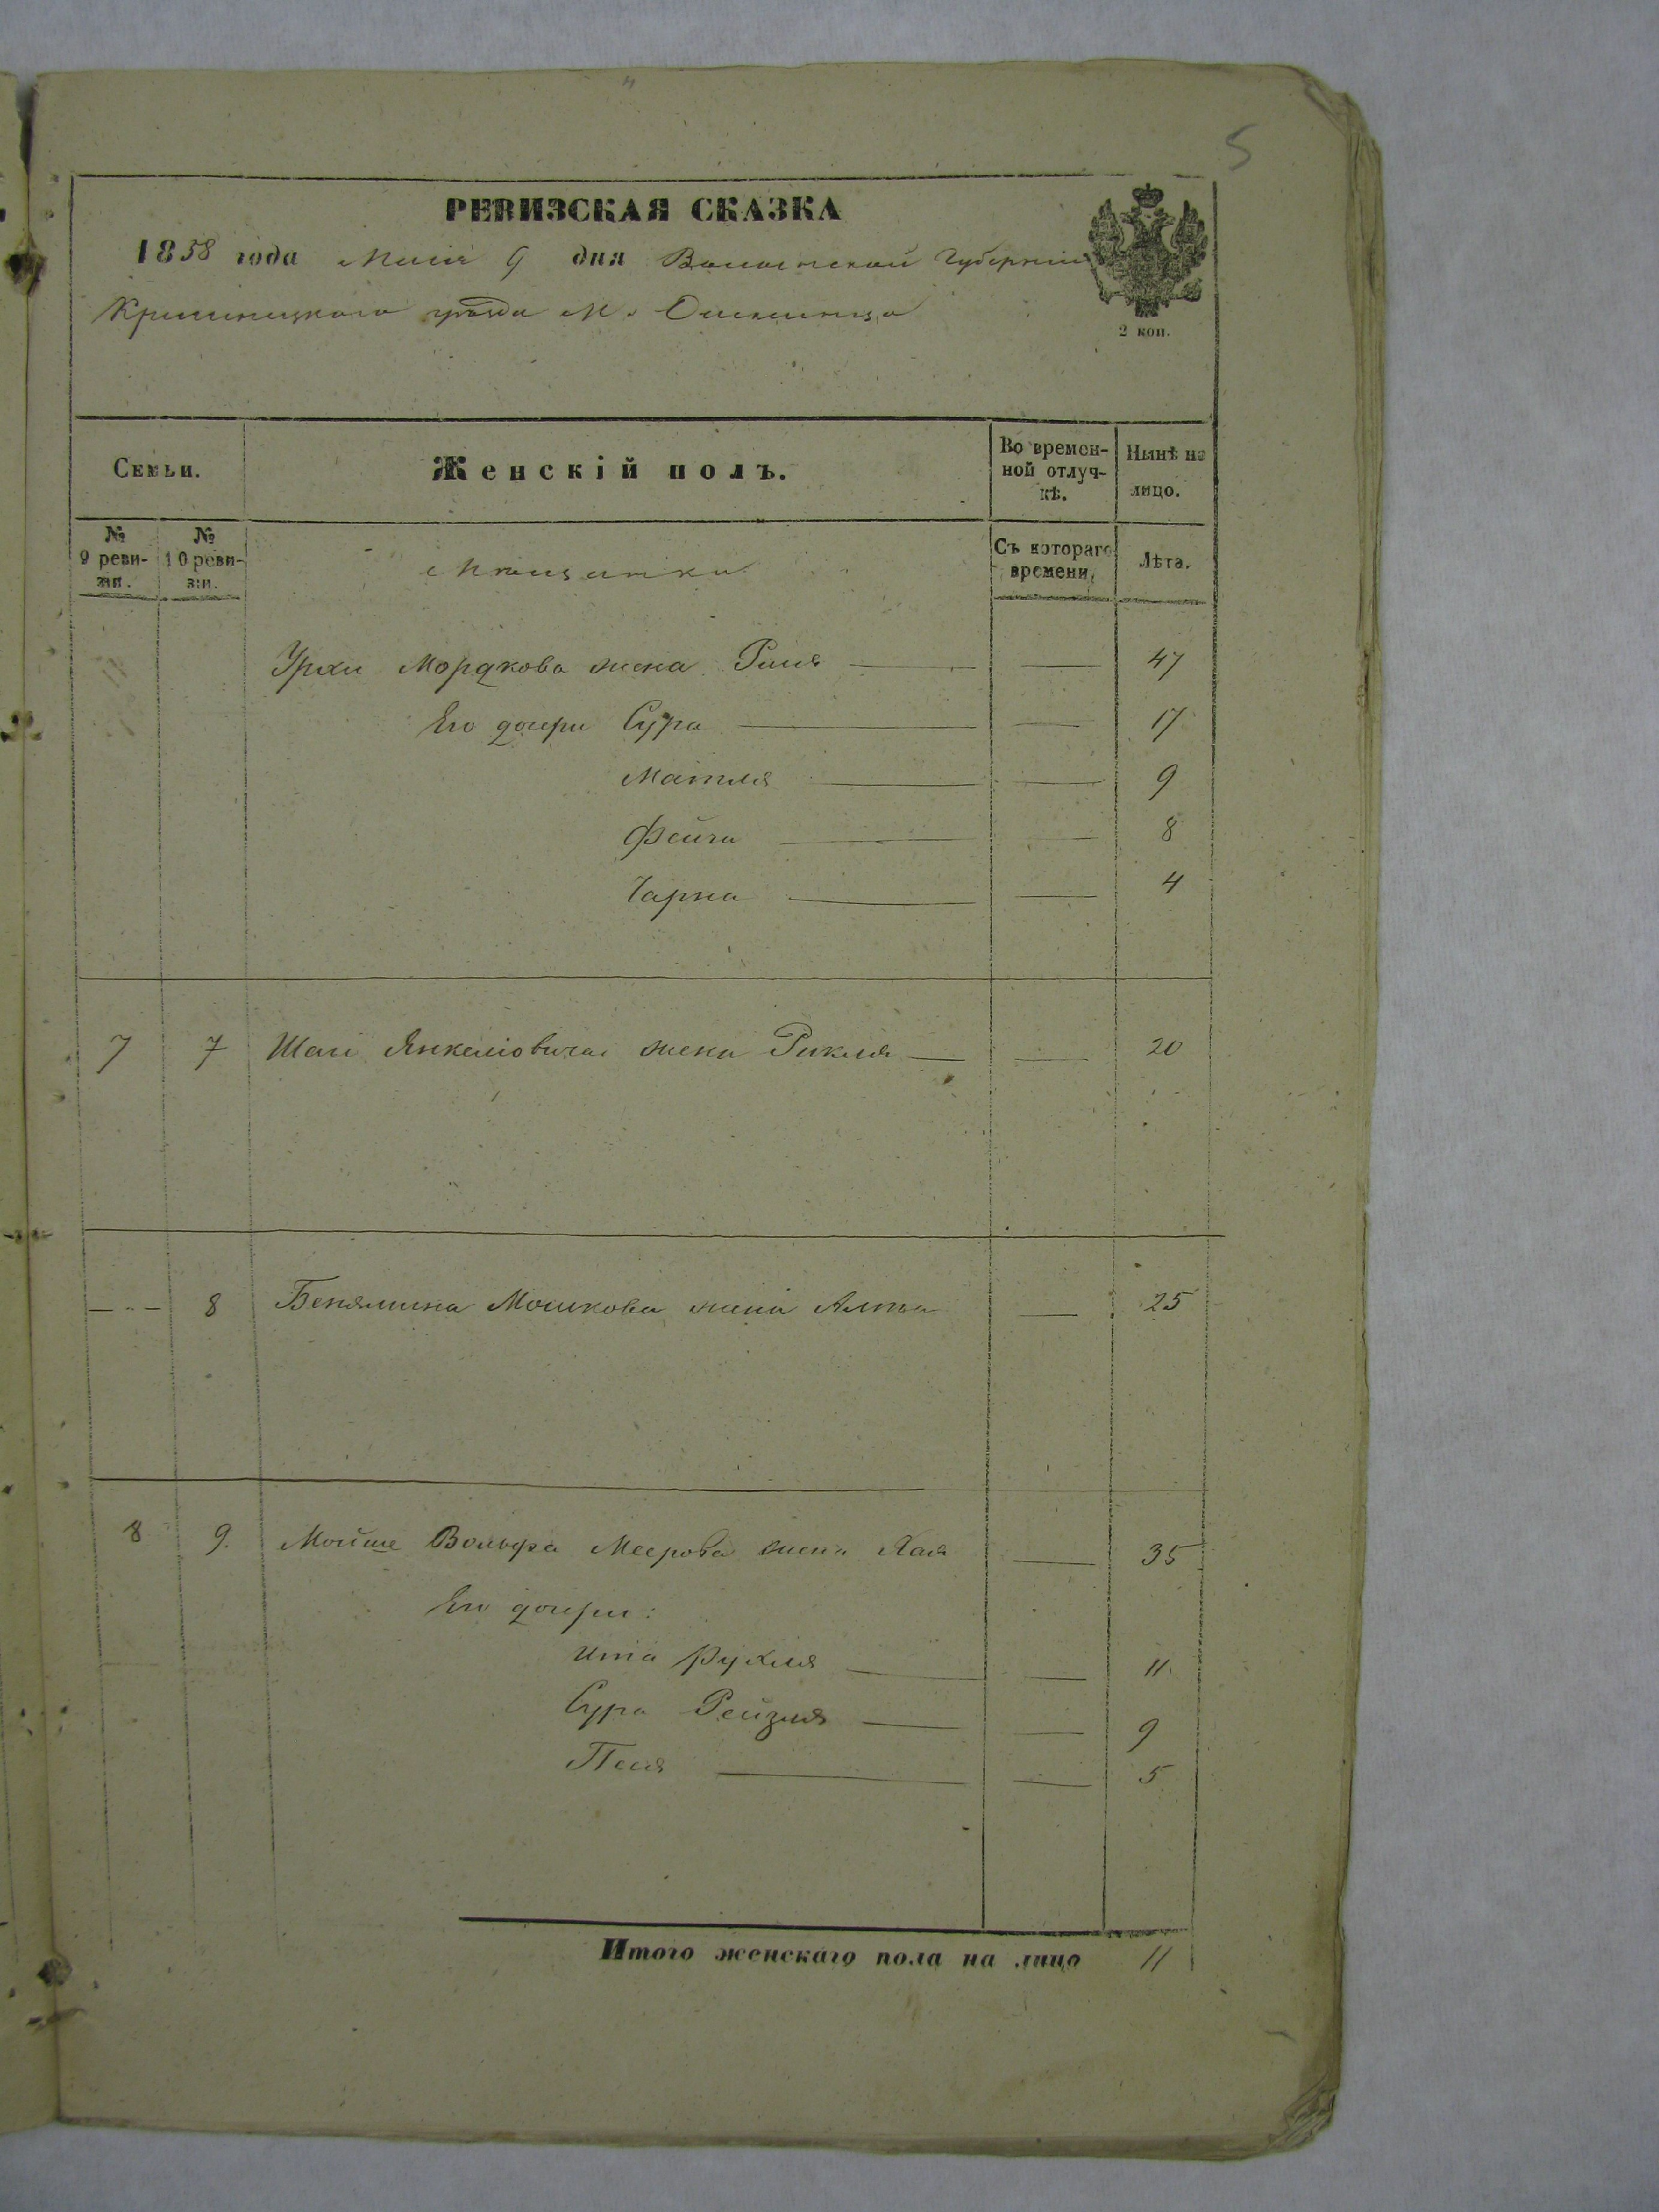 5
РЕВИЗСКАЯ СКАЗКА
1858 года Маія 9 дня Волынской Губерніи
Кременецкаго уѣзда М.
2 коп.
Семьи.
Женскій полъ.
Во времен-
ной отлуч-
кѣ.
Нынѣ на
лицо.
№
9 реви-
зіи.
№
10 реви-
зіи.
Мѣщанки
Съ котораго
времени.
Лѣта.
Мордкова жена — — 47
Его дочери Сура — — 17
Матля — — 9
Фейга — — 8
Чарна — — 4
7 7 Шаи Янкелiовича жена Рикля — — 20
— " — 8 Бенямина Мошкова жена — 25
8 9. Мойше Вольфа Меерова жена Хая — 35
Его дочери:
Ита Рухля — — 11
Сура Рейзля — — 9
Песя — — 5
Итого женскаго пола на лицо 11